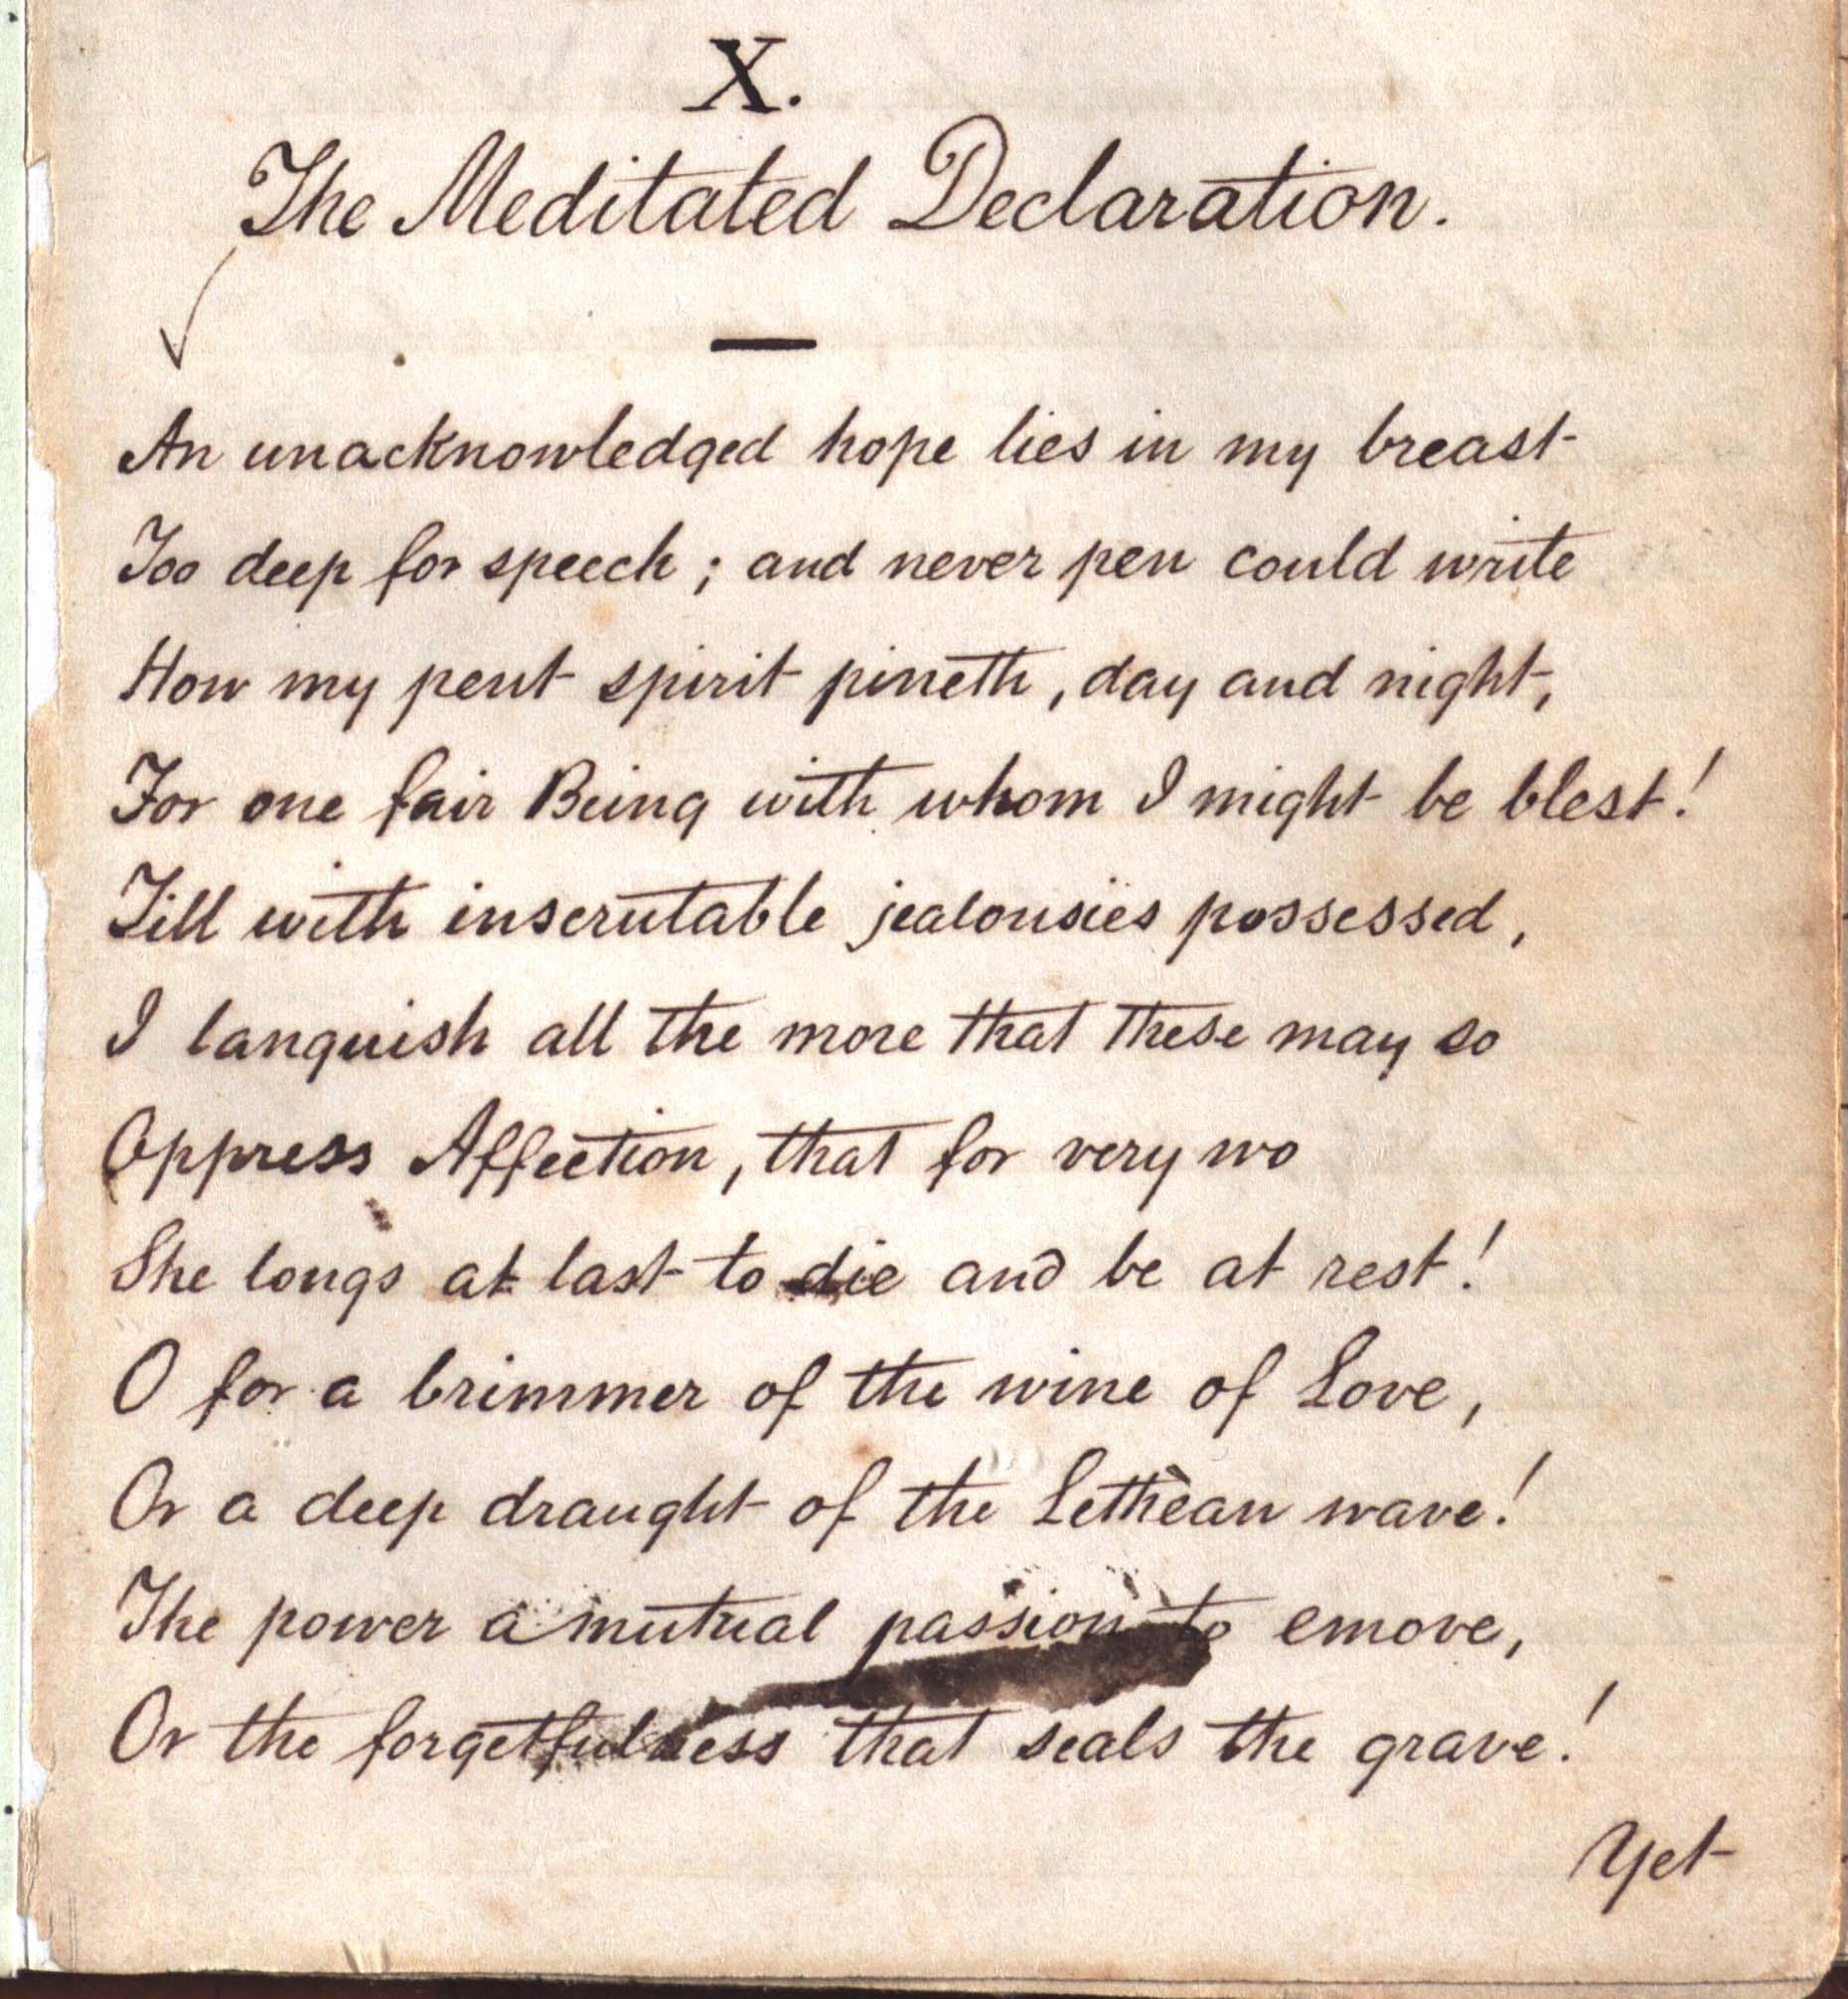 X.
The Meditated Declaration.
An unacknowledged hope lies in my breast
Too deep for speech; and never pen could write
How my pent spirit pineth, day and night,
For one fair Being with whom I might be blest!
Till with inscrutable jealousies possessed,
I languish all the more that these may so
Oppress Affection, that for very wo
She longs at last to die and be at rest!
O for a brimmer of the wine of Love,
Or a deep draught of the Lethèan wave!
The power a mutual passion to emove,
Or the forgetfulness that seals the grave!
Yet